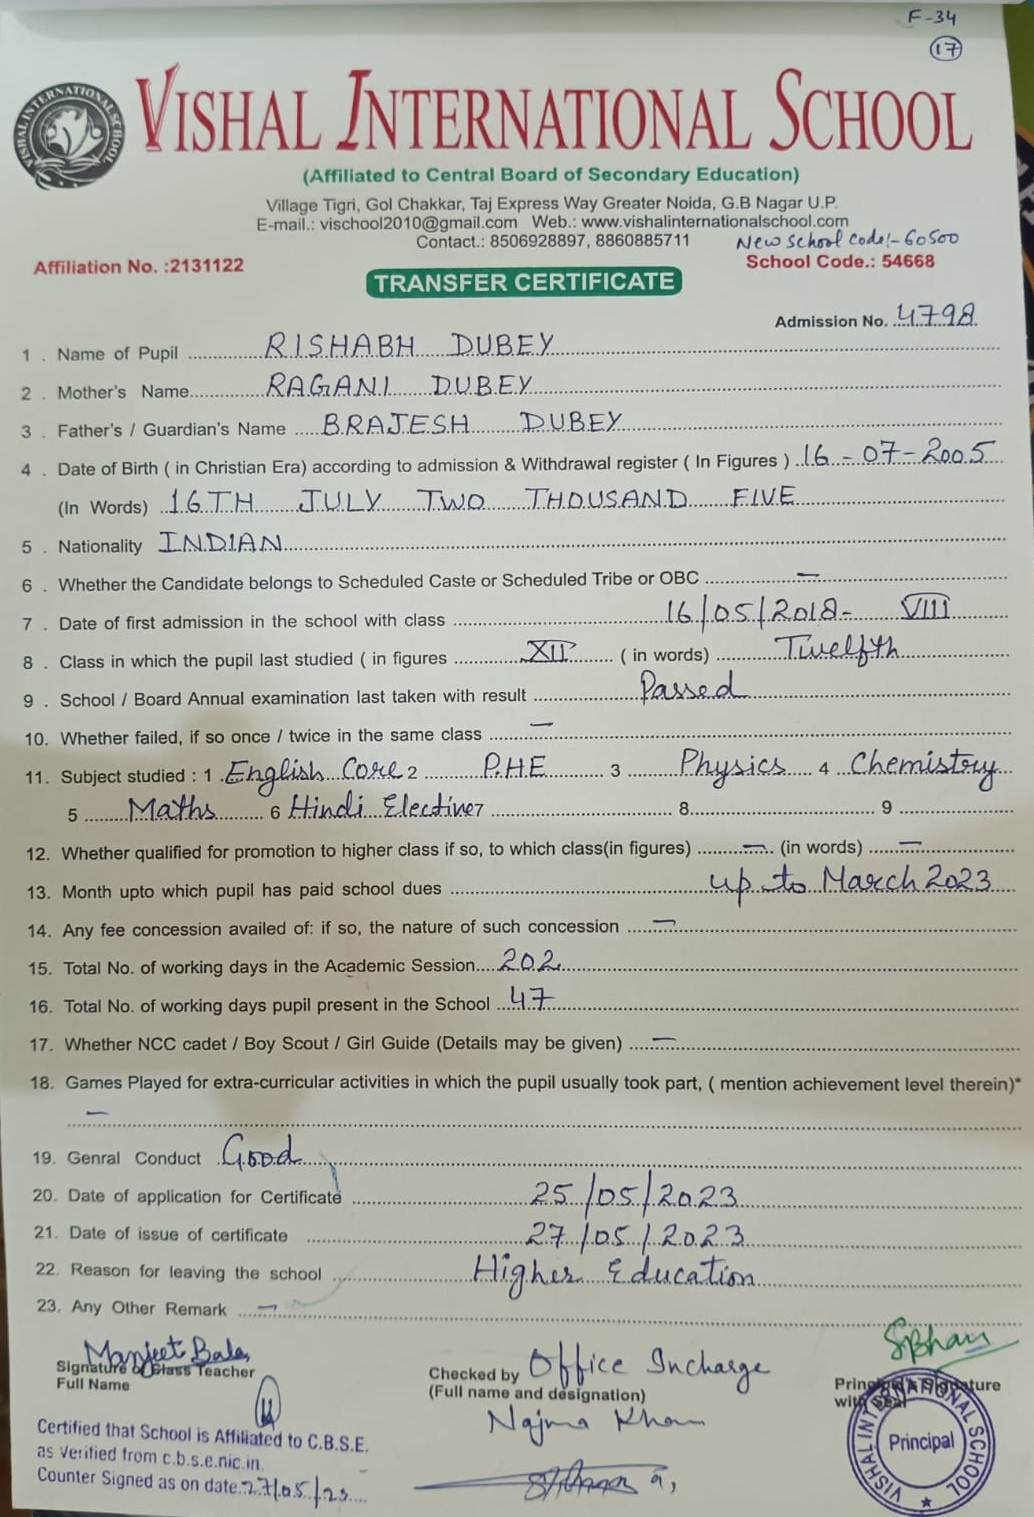 F-34
17
VISHAL INTERNATIONAL SCHOOL
VISHAL INTERNATIONAL SCHOOL
(Affiliated to Central Board of Secondary Education)
Village Tigri, Gol Chakkar, Taj Express Way Greater Noida, G.B Nagar U.P.
E-mail.: vischool2010@gmail.com Web.: www.vishalinternationalschool.com
Contact.: 8506928897, 8860885711 New School Code:- 60500
Affiliation No. :2131122 School Code.: 54668
TRANSFER CERTIFICATE
Admission No. 4798
1 . Name of Pupil RISHABH DUBEY
2 . Mother's Name RAGANI DUBEY
3 . Father's / Guardian's Name BRAJESH DUBEY
4 . Date of Birth ( in Christian Era) according to admission & Withdrawal register ( In Figures ) 16-07-2005
(In Words) 16TH JULY TWO THOUSAND FIVE
5 . Nationality INDIAN
6 . Whether the Candidate belongs to Scheduled Caste or Scheduled Tribe or OBC —
7 . Date of first admission in the school with class 16/05/2018- VIII
8 . Class in which the pupil last studied ( in figures XII ( in words) Twelfth
9 . School / Board Annual examination last taken with result Passed
10. Whether failed, if so once / twice in the same class —
11. Subject studied : 1 English Core 2 P.HE 3 Physics 4 Chemistry
5 Maths 6 Hindi Elective 7 8 9
12. Whether qualified for promotion to higher class if so, to which class(in figures) — (in words) —
13. Month upto which pupil has paid school dues up to March 2023
14. Any fee concession availed of: if so, the nature of such concession —
15. Total No. of working days in the Academic Session 202
16. Total No. of working days pupil present in the School 47
17. Whether NCC cadet / Boy Scout / Girl Guide (Details may be given) —
18. Games Played for extra-curricular activities in which the pupil usually took part, ( mention achievement level therein)*
—
19. Genral Conduct Good
20. Date of application for Certificate 25/05/2023
21. Date of issue of certificate 27/05/2023
22. Reason for leaving the school Higher Education
23. Any Other Remark —
Manjeet Bala
Signature of Class Teacher
Full Name
Checked by Office Incharge
(Full name and designation)
Najma Khan
Principal's Signature
with Seal
VISHAL INTERNATIONAL SCHOOL
Principal
Certified that School is Affiliated to C.B.S.E.
as Verified from c.b.s.e.nic.in.
Counter Signed as on date 27/05/23